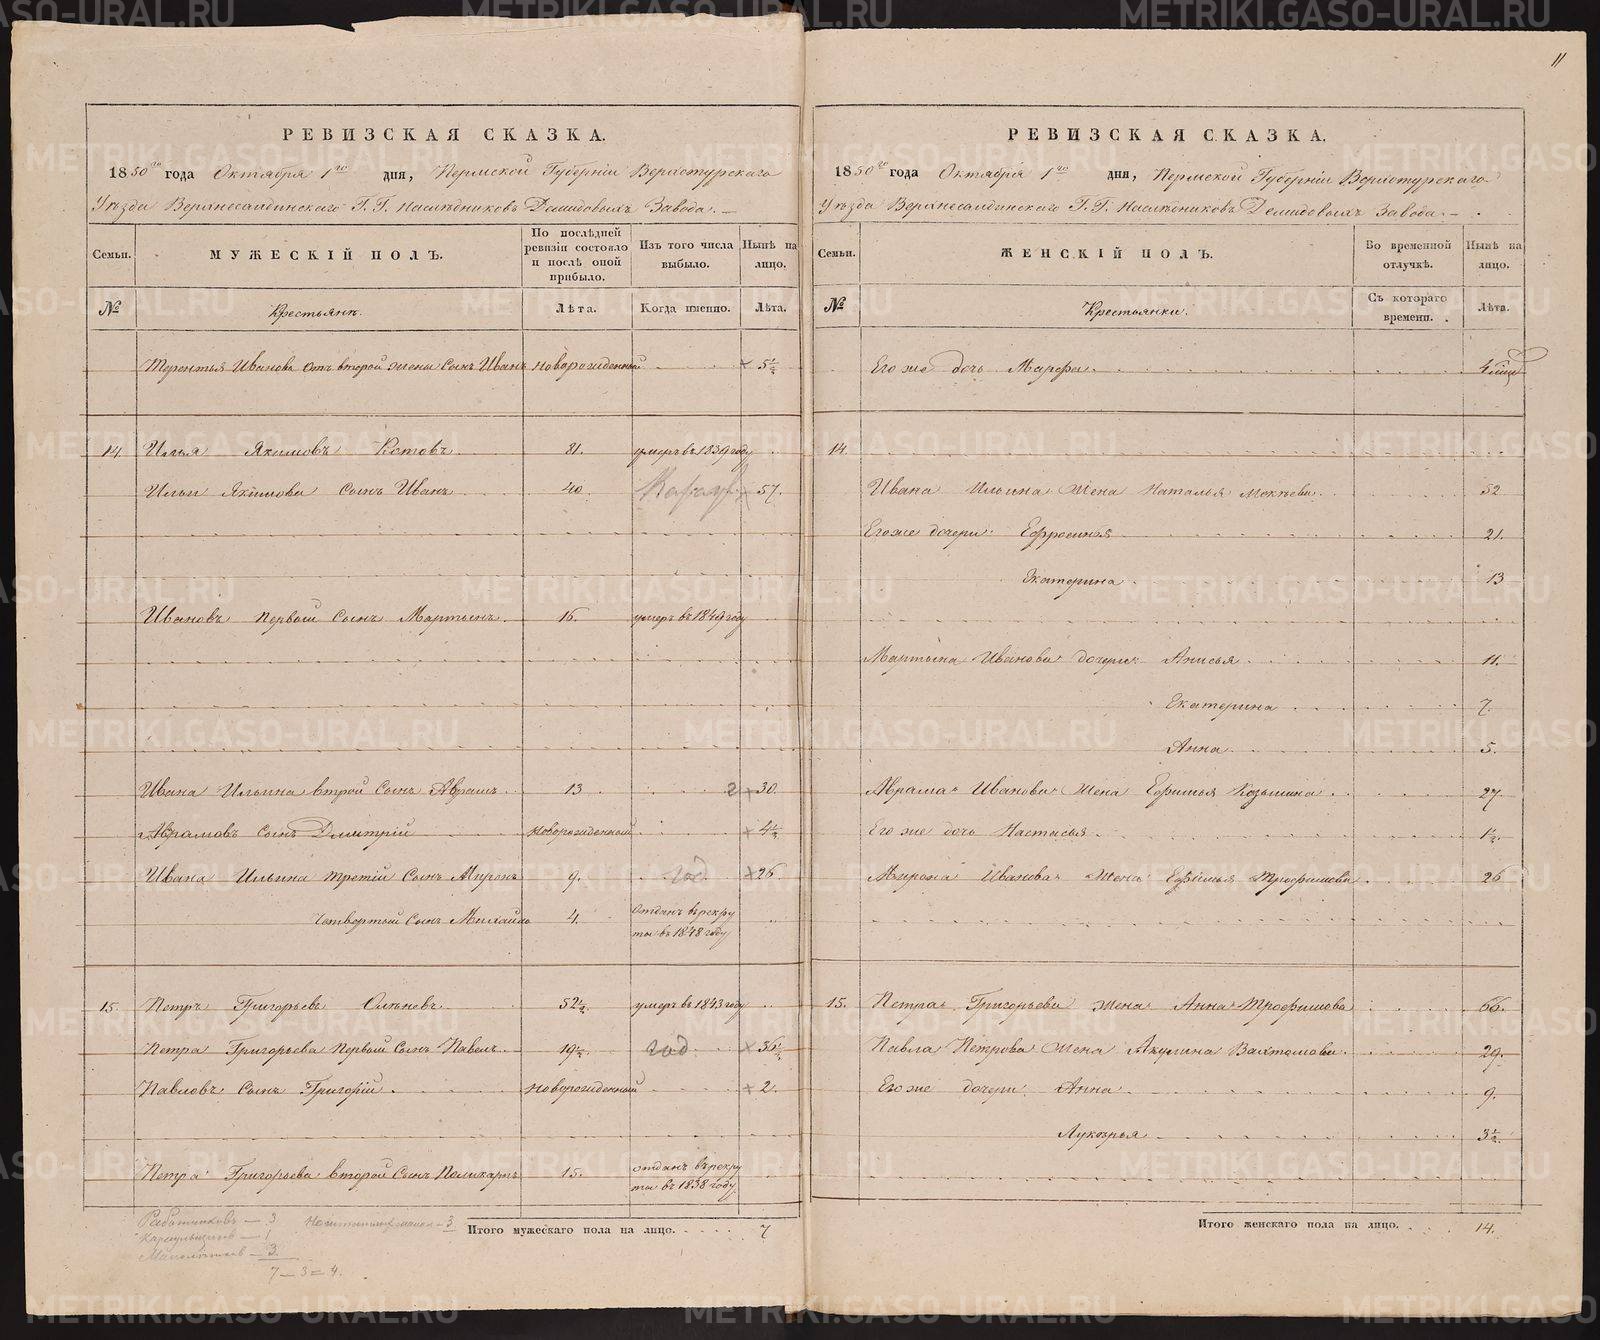 11
РЕВИЗСКАЯ СКАЗКА.
1850го года Октября 1го дня, Пермской Губерніи Верхотурскаго
Уѣзда Верхнесалдинскаго Г.Г. Наслѣдниковъ Демидовыхъ Завода.
Семьи. МУЖЕСКІЙ ПОЛЪ. По послѣдней ревизіи состояло и послѣ оной прибыло. Изъ того числа выбыло. Нынѣ на лицо.
№ Крестьянъ. Лѣта. Когда именно. Лѣта.
Терентья Иванова отъ второй жены сынъ Иванъ новорожденный × 5½
14. Илья Якимовъ Котовъ 81. умеръ въ 1839 году
Ильи Якимова сынъ Иванъ 40 Караул × 57.
Ивановъ первый сынъ Мартынъ 16. умеръ въ 1849 году
Ивана Ильина второй сынъ Аврамъ 13 2 × 30.
Аврамовъ сынъ Дмитрій новорожденный × 4½
Ивана Ильина третій сынъ Миронъ 9. год × 26
четвертый сынъ Михайло 4. отданъ въ рекру
ты въ 1848 году
15. Петръ Григорьевъ 52½. умеръ въ 1843 году
Петра Григорьева первый сынъ Павелъ 19½. год × 36½
Павловъ сынъ Григорій новорожденный × 2.
Петра Григорьева второй сынъ Поликарпъ 15. отданъ въ рекру
ты въ 1838 году.
Итого мужескаго пола на лицо. 7
Работниковъ — 3
— 1
Малолѣтковъ — 3.
7 — 3 = 4.
РЕВИЗСКАЯ СКАЗКА.
1850го года Октября 1го дня, Пермской Губерніи Верхотурскаго
Уѣзда Верхнесалдинскаго Г.Г. Наслѣдниковъ Демидовыхъ Завода.
Семьи. ЖЕНСКІЙ ПОЛЪ. Во временной отлучкѣ. Нынѣ на лицо.
№ Крестьянки. Съ котораго времени. Лѣта.
Его же дочь Марфа
14.
Ивана Ильина жена Наталья Мокѣева 52
Его же дочери Ефросинья 21.
Екатерина 13
Мартына Иванова дочери: Анисья 11.
Екатерина 7.
Анна 5.
Аврама Иванова жена Ефимья Козьмина 27.
Его же дочь Настасья 1½.
Мирона Иванова жена Ефимья Трофимова 26
15. Петра Григорьева жена Анна Трофимова 66.
Павла Петрова жена Акулина 29.
Его же дочери: Анна 9.
Лукерья 3½.
Итого женскаго пола на лицо. 14.
METRIKI.GASO-URAL.RU